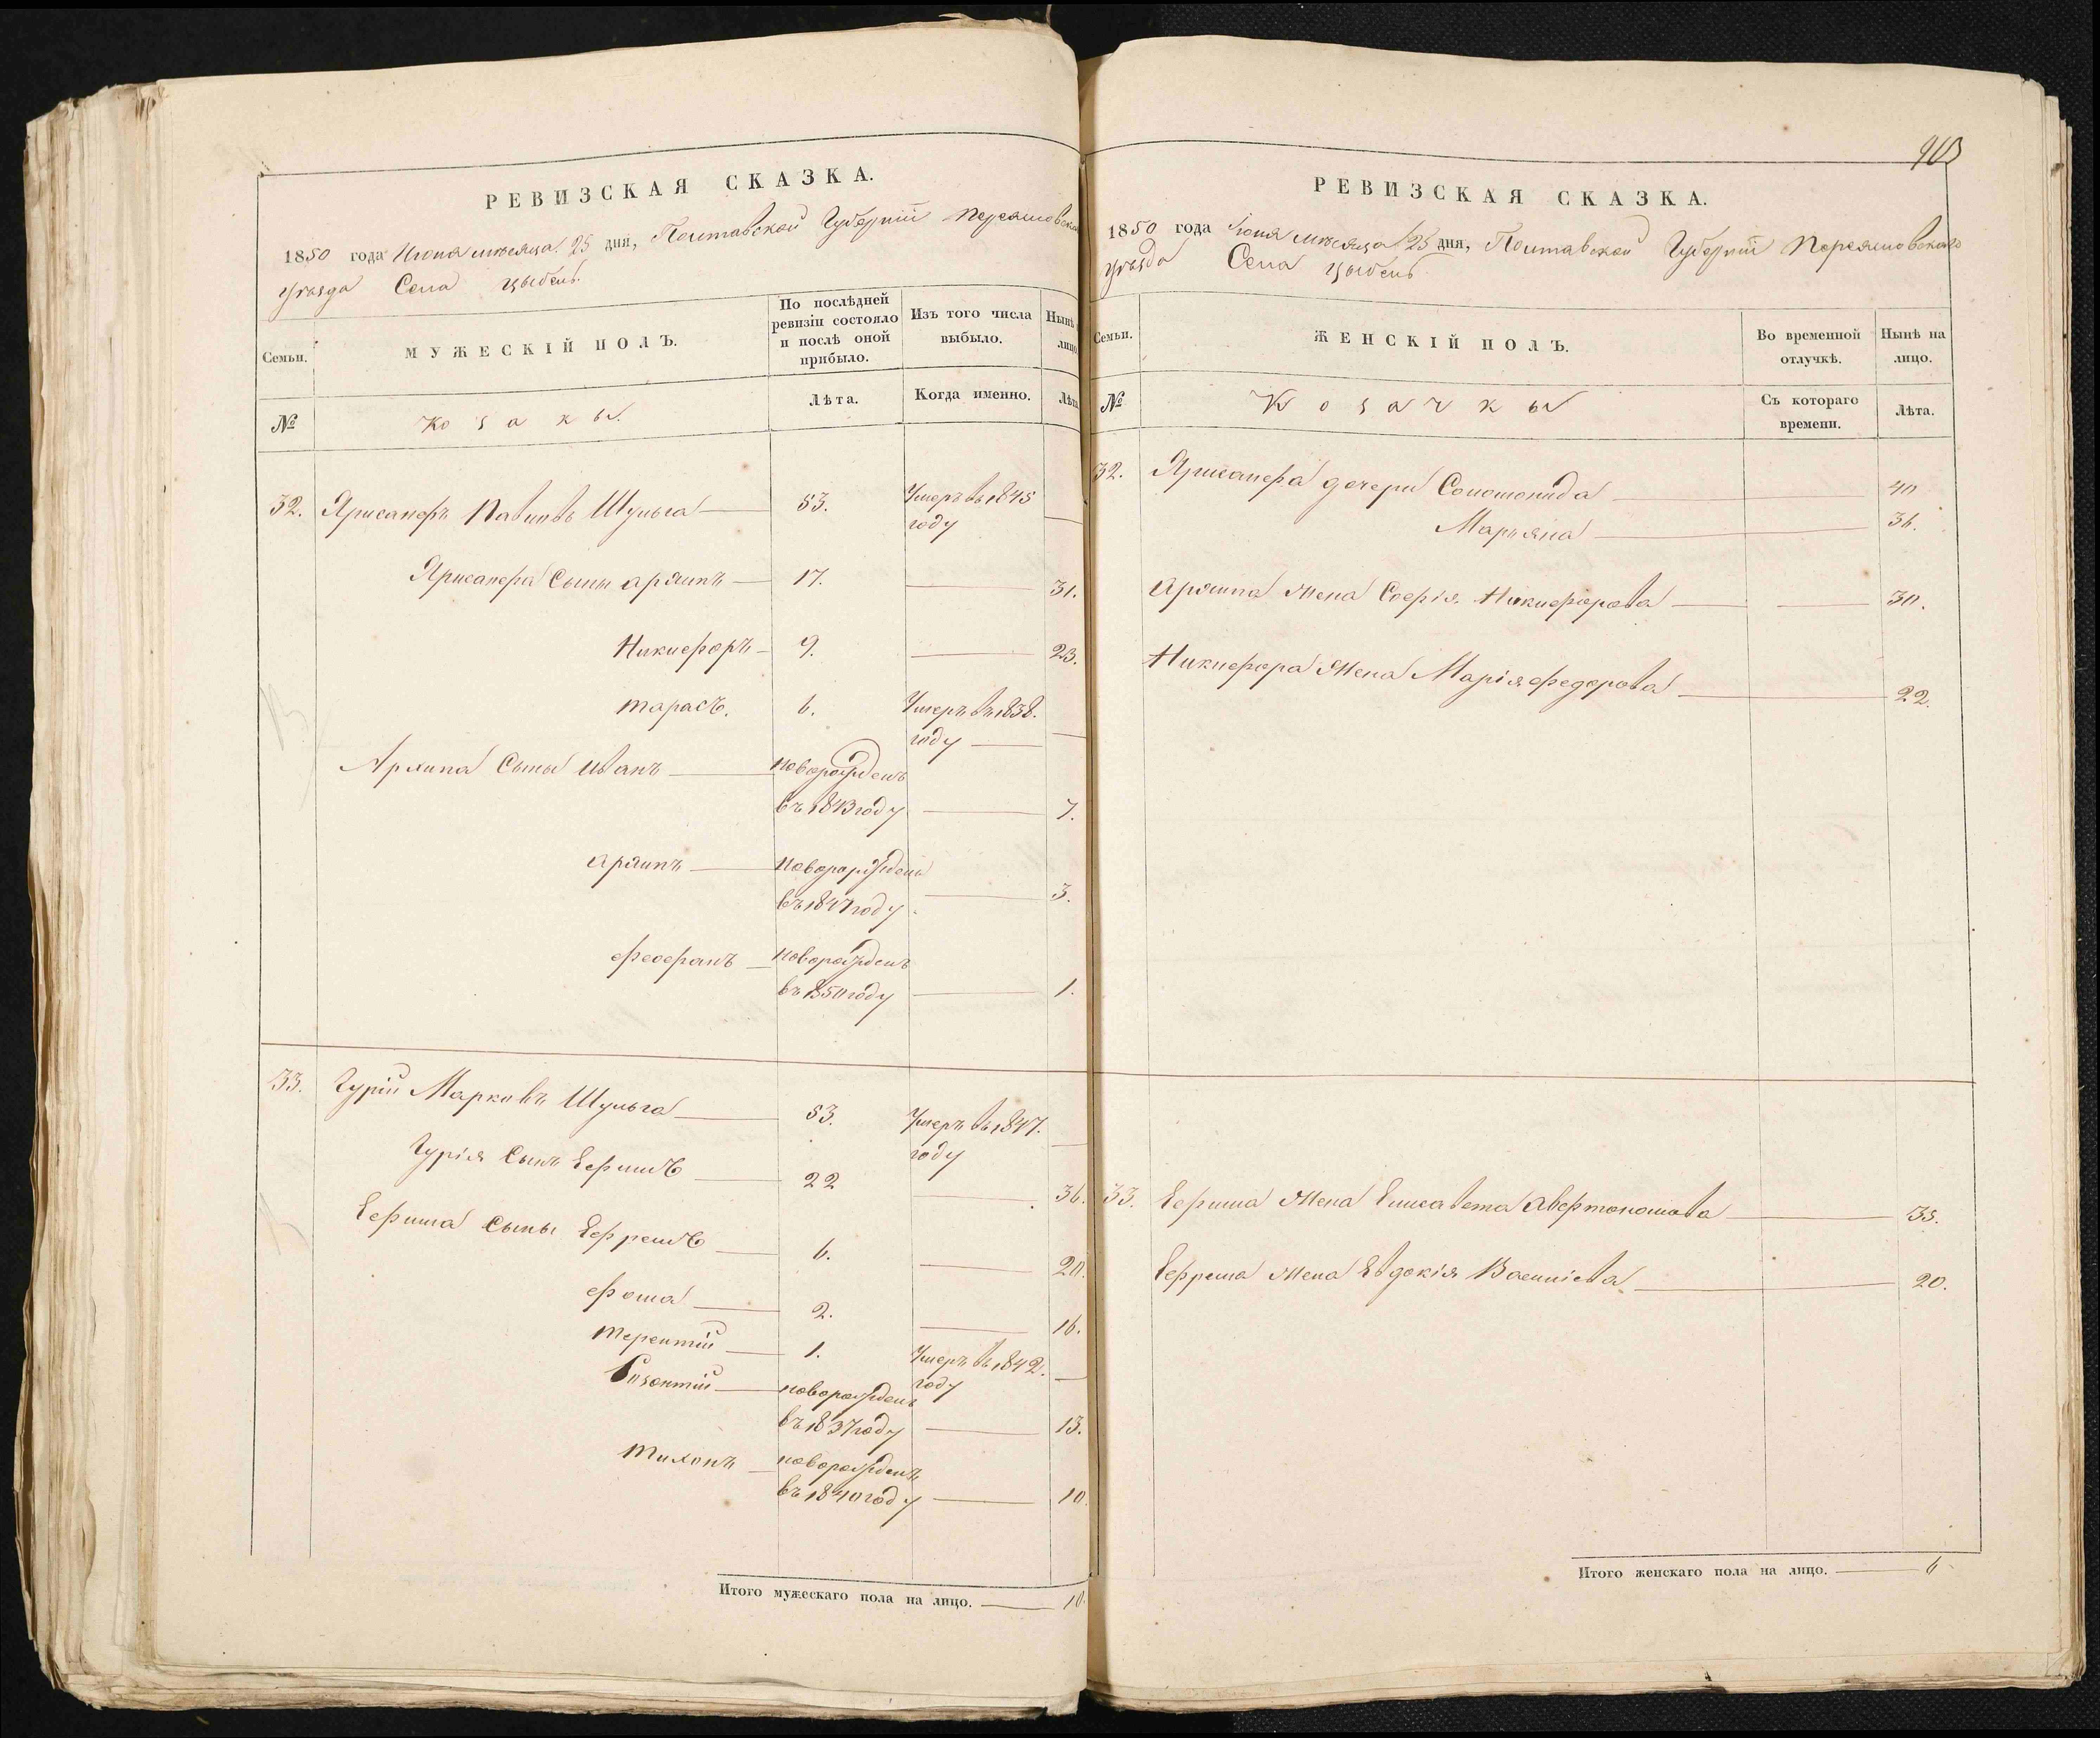 РЕВИЗСКАЯ СКАЗКА.
1850 года Июня месяца 25 дня, Полтавской Губерніи Переясловскаго
уезда Села Цыбень
Семьи.
МУЖЕСКІЙ ПОЛЪ.
По послѣдней ревизіи состояло и послѣ оной прибыло.
Изъ того числа выбыло.
Нынѣ лицо
№
Козакы.
Лѣта.
Когда именно.
Лѣта
32. Шульга 53. Умеръ въ 1845
году
сыны Архипъ 17. 31.
Никифоръ 9. 23.
Тарасъ. 6. Умеръ въ 1838.
году
Архипа сыны Иванъ новорожденъ
въ 1843 году 7.
Архипъ новорожденъ
въ 1847 году 3.
Феофанъ новорожденъ
въ 1850 году 1.
33. Гурій Марковъ Шульга 53. Умеръ въ 1847.
году
Гурія сынъ Ефимъ 22 36.
Ефима сыны Ефремъ 6. 20.
Фома 2. 16.
Терентій 1. Умеръ въ 1842.
году
новорожденъ
въ 1837 году 13.
Тихонъ новорожденъ
въ 1840 году 10.
Итого мужескаго пола на лицо. 10.
903
РЕВИЗСКАЯ СКАЗКА.
1850 года Іюня месяца 25 дня, Полтавской Губерніи Переясловскаго
уезда Села Цыбень
Семьи.
ЖЕНСКІЙ ПОЛЪ.
Во временной отлучкѣ.
Нынѣ на лицо.
№
Козачкы
Съ котораго времени.
Лѣта.
32. дочери Соломонида 40
Марьяна 36.
Архипа жена Софія Никифорова 30.
Никифора жена Марія Федорова 22.
33. Ефима жена Елисавета 35.
Ефрема жена Евдокія 20.
Итого женскаго пола на лицо. 6